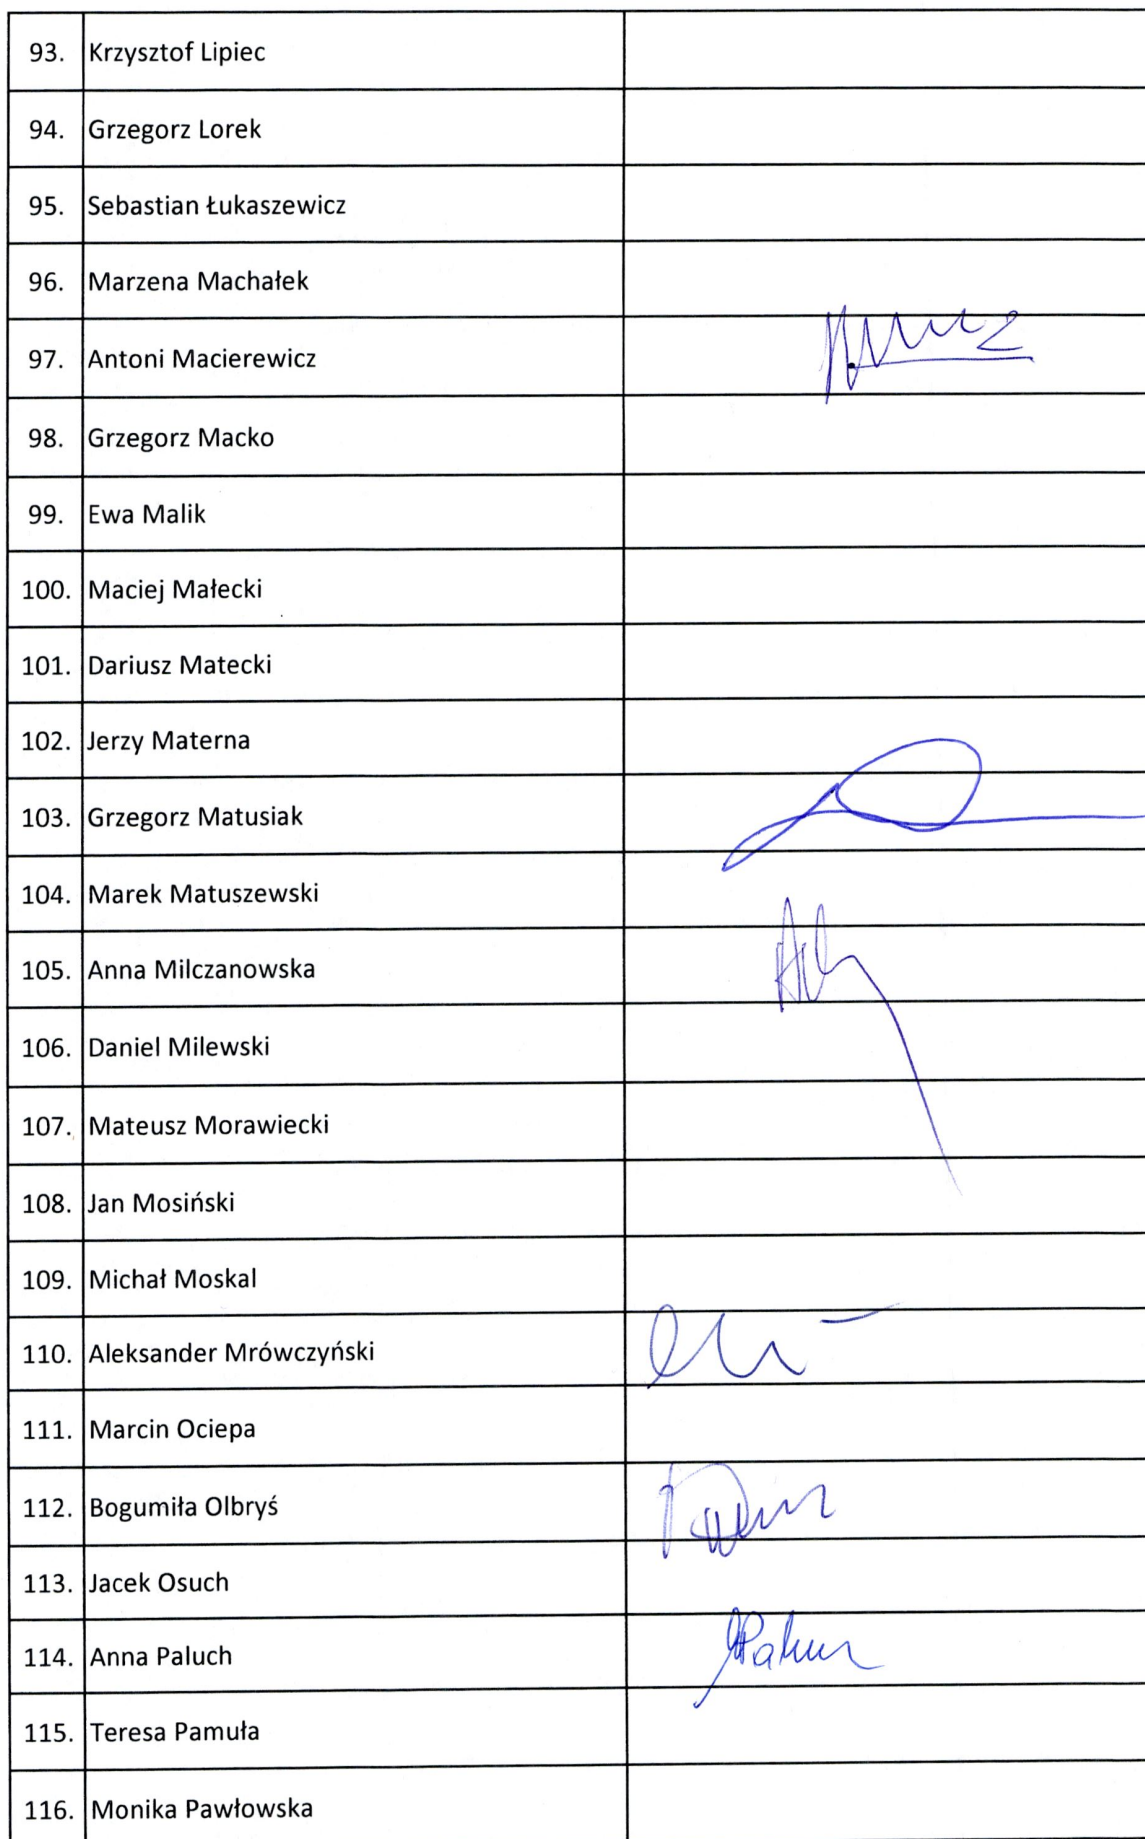 93. Krzysztof Lipiec
94. Grzegorz Lorek
95. Sebastian Łukaszewicz
96. Marzena Machałek
97. Antoni Macierewicz
98. Grzegorz Macko
99. Ewa Malik
100. Maciej Małecki
101. Dariusz Matecki
102. Jerzy Materna
103. Grzegorz Matusiak
104. Marek Matuszewski
105. Anna Milczanowska
106. Daniel Milewski
107. Mateusz Morawiecki
108. Jan Mosiński
109. Michał Moskal
110. Aleksander Mrówczyński
111. Marcin Ociepa
112. Bogumiła Olbryś
113. Jacek Osuch
114. Anna Paluch
115. Teresa Pamuła
116. Monika Pawłowska